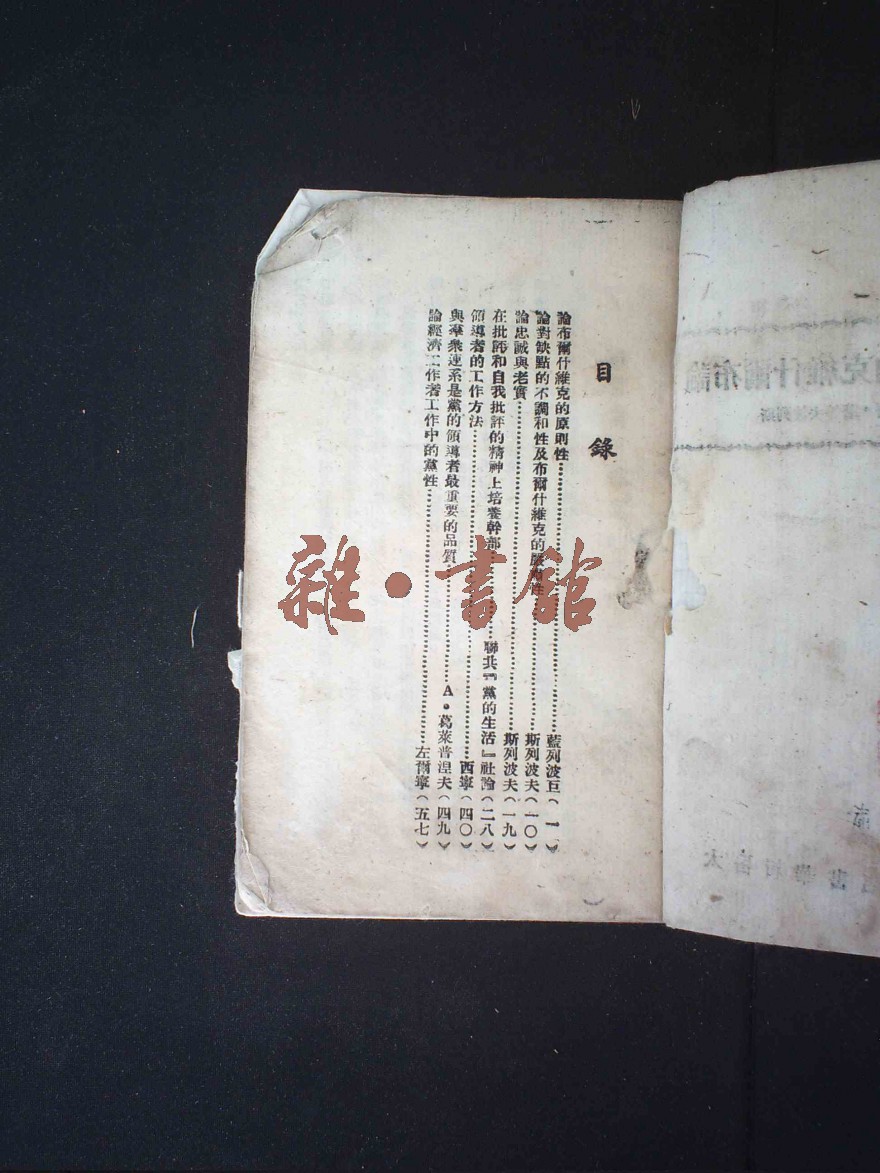 目錄
論布爾什維克的原則性……藍列波巨(一)
論對缺點的不調和性及布爾什維克的……性……斯列波夫(一〇)
論忠誠與老實……斯列波夫(一九)
在批評和自我批評的精神上培養幹部……聯共『黨的生活』社論(二八)
領導者的工作方法……西寧(四〇)
與羣衆連系是黨的領導者最重要的品質……A・葛萊普涅夫(四九)
論經濟工作者工作中的黨性……左爾寧(五七)
雜・書館